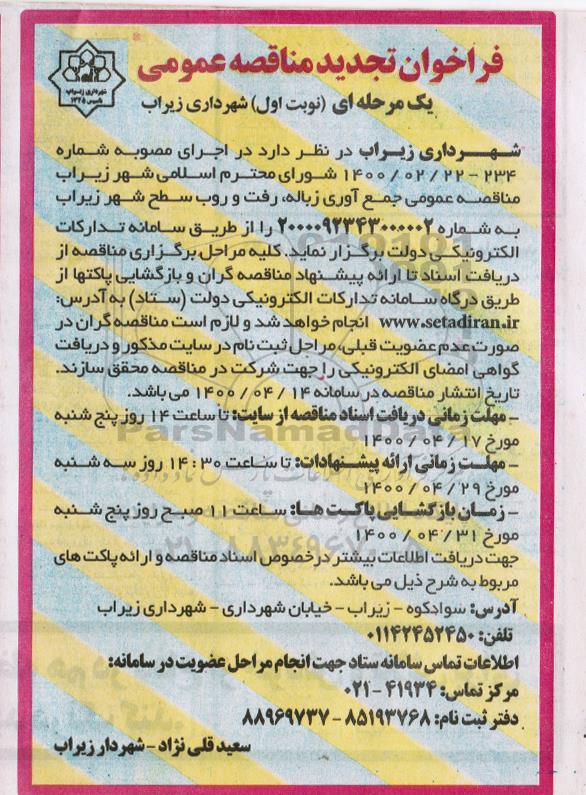 فراخوان تجدید مناقصه عمومی
یک مرحله ای (نوبت اول) شهرداری زیراب
شهرداری زیراب
تاسیس ۱۳۴۵
شهرداری زیراب در نظر دارد در اجرای مصوبه شماره
۲۳۴ - ۲۲ / ۰۲ / ۱۴۰۰ شورای محترم اسلامی شهر زیراب
مناقصه عمومی جمع آوری زباله، رفت و روب سطح شهر زیراب
به شماره ۲۰۰۰۰۹۲۳۴۳۰۰۰۰۰۲ را از طریق سامانه تدارکات
الکترونیکی دولت برگزار نماید. کلیه مراحل برگزاری مناقصه از
دریافت اسناد تا ارائه پیشنهاد مناقصه گران و بازگشایی پاکتها از
طریق درگاه سامانه تدارکات الکترونیکی دولت (ستاد) به آدرس:
www.setadiran.ir انجام خواهد شد و لازم است مناقصه گران در
صورت عدم عضویت قبلی، مراحل ثبت نام در سایت مذکور و دریافت
گواهی امضای الکترونیکی را جهت شرکت در مناقصه محقق سازند.
تاریخ انتشار مناقصه در سامانه ۱۴ / ۰۴ / ۱۴۰۰ می باشد.
- مهلت زمانی دریافت اسناد مناقصه از سایت: تا ساعت ۱۴ روز پنج شنبه
مورخ ۱۷ / ۰۴ / ۱۴۰۰
ParsNamadData
- مهلت زمانی ارائه پیشنهادات: تا ساعت ۱۴:۳۰ روز سه شنبه
مورخ ۲۹ / ۰۴ / ۱۴۰۰
- زمان بازگشایی پاکت ها: ساعت ۱۱ صبح روز پنج شنبه
مورخ ۳۱ / ۰۴ / ۱۴۰۰
جهت دریافت اطلاعات بیشتر در خصوص اسناد مناقصه و ارائه پاکت های
مربوط به شرح ذیل می باشد.
آدرس: سوادکوه - زیراب - خیابان شهرداری - شهرداری زیراب
تلفن: ۰۱۱۴۲۴۵۲۴۵۰
اطلاعات تماس سامانه ستاد جهت انجام مراحل عضویت در سامانه:
مرکز تماس: ۴۱۹۳۴ - ۰۲۱
دفتر ثبت نام: ۸۵۱۹۳۷۶۸ - ۸۸۹۶۹۷۳۷
سعید قلی نژاد - شهردار زیراب